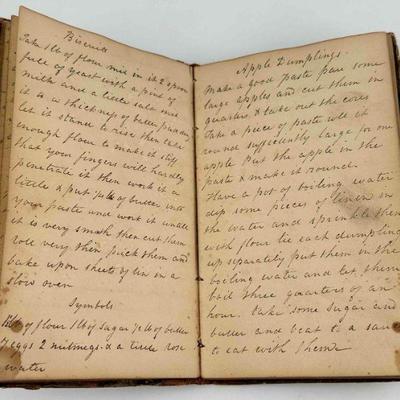 Biscuits
Take 1 lb of flour mix in it 2 spoon
full of yeast with a pint of
milk and a little salt mix
it to a thickness of batter pudding
let it stand to rise then take
enough flour to make it stiff
that your fingers will hardly
penetrate it then work it a
little & put 1/4 lb of butter into
your paste and work it untill
it is very smoth then cut them
role very thin prick them and
bake upon sheets of tin in a
slow oven
Symbols
1 lb of flour 1 lb of sugar 1/2 lb of butter
7 eggs 2 nutmegs & a little rose
water
Apple Dumplings.
Make a good paste pare some
large apples and cut them in
quarters & take out the cores
take a piece of paste role it
round sufficiently large for one
apple put the apple in the
paste & make it round.
Have a pot of boiling water
dip some pieces of linen in
the water and sprinkle them
with flour tie each dumpling
up separately put them in the
boiling water and let them
boil three quarters of an
hour. take some sugar and
butter and beat to a sauce
to eat with them